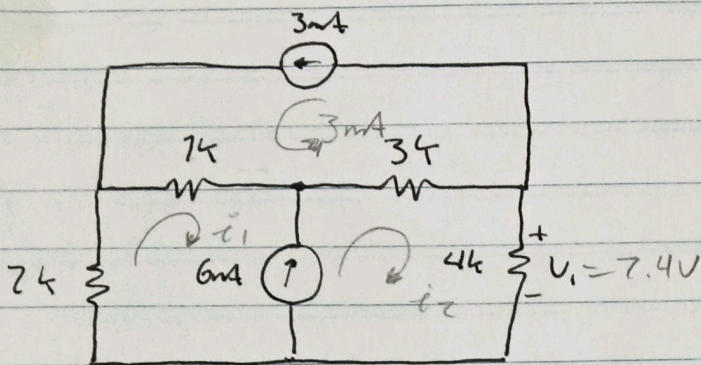 3mA
3mA
1k
3k
i₁
2k
6mA
i₂
4k
+
V₁ = 2.4V
-